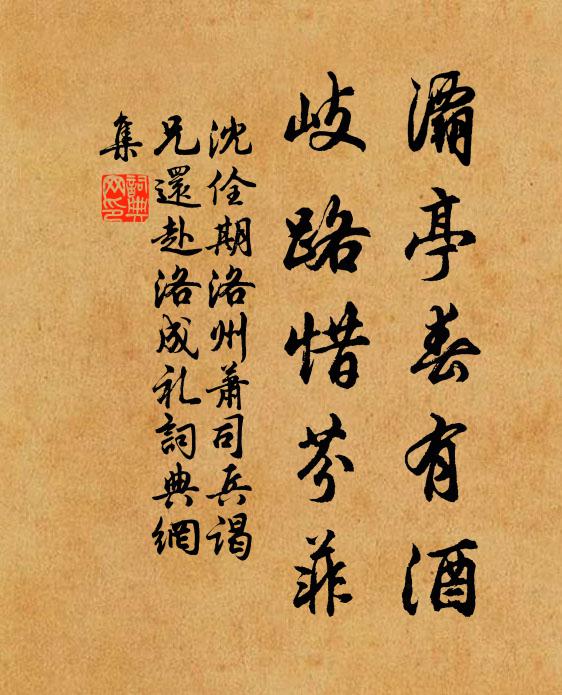 灞亭春有酒
岐路惜芬菲
沈佺期洛州蕭司兵谒
兄還赴洛成礼詞典網
集
詞典
网印